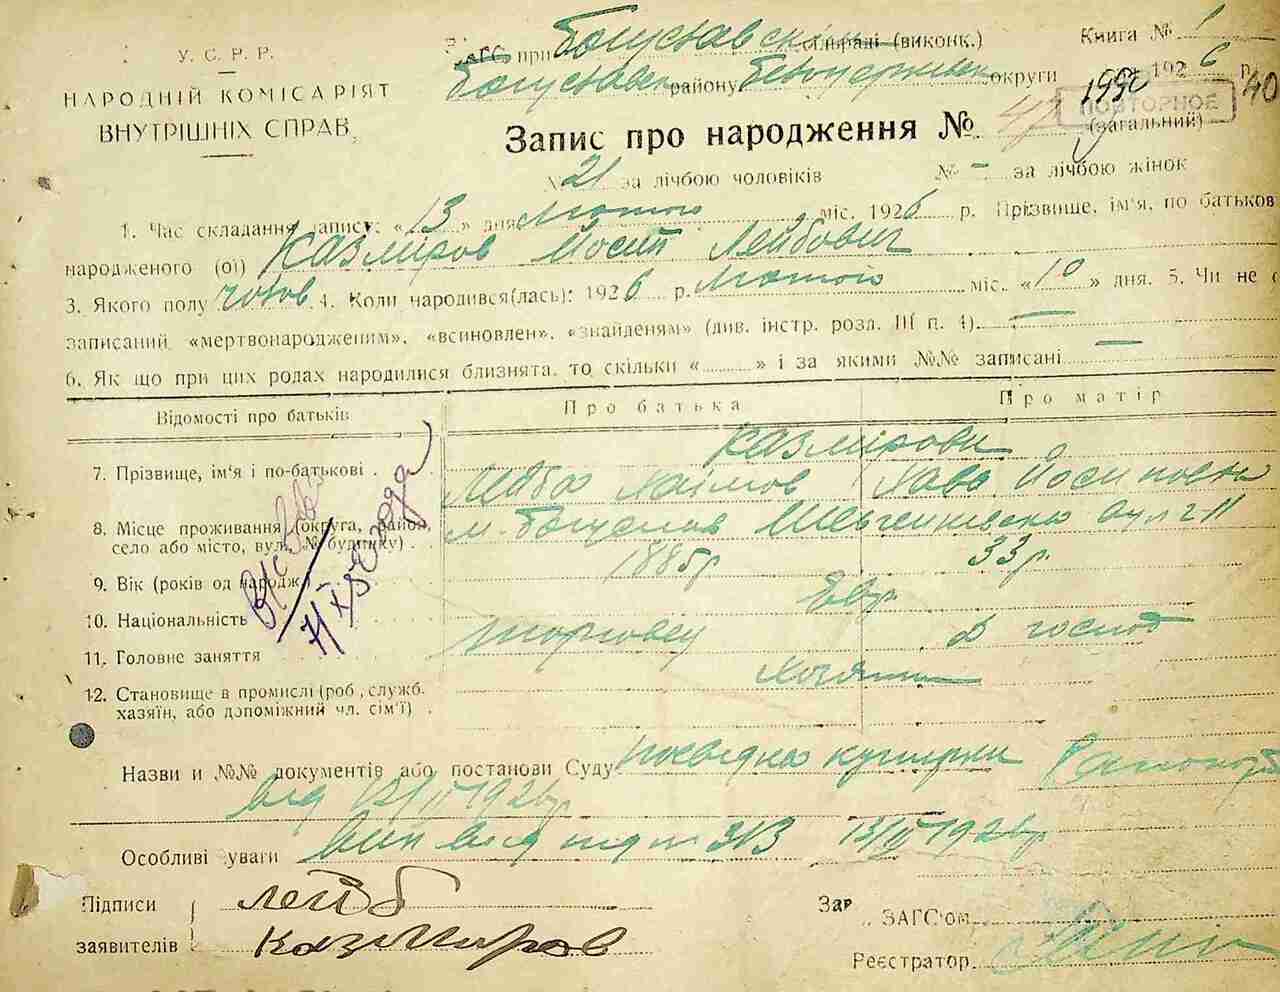 У.С.Р.Р.
НАРОДНІЙ КОМІСАРІЯТ
ВНУТРІШНІХ СПРАВ
ЗАГС при Богуславскій сільраді (виконк.)
Богуславск району Білоцерківськ округи
Книга № 1
192 6 р.
1950
40
ПОВТОРНОЕ
Запис про народження №
(загальний)
№ 21 за лічбою чоловіків № – за лічбою жінок
1. Час складання запису: «13» дня лютого міс. 1926 р. Прізвище, ім'я, по батьков
народженого (ої) Казміров Йосип Лейбович
3. Якого полу чолов 4. Коли народився(лась): 1926 р. лютого міс. «10» дня. 5. Чи не є
записаний «мертвонародженим», «всиновлен», «знайденям» (див. інстр. розд. III п. 4). —
6. Як що при цих родах народилися близнята, то скільки «..........» і за якими №№ записані —
Відомості про батьків Про батька Про матір
Казмірови
7. Прізвище, ім'я і по-батькові Лейба Хаімов Хава Йосиповна
8. Місце проживання (округа, район, м. Богуслав Шевченківська вул 2 11
село або місто, вул. № будинку)
9. Вік (років од народж.) 1885р 33 р.
10. Національність Євр.
11. Головне заняття торговец д господ
12. Становище в промислі (роб., служб. Хозяин
хазяїн, або допоміжний чл. сім'ї)
Назви и №№ документів або постанови Суду: кушерки
від 13/II 1926р
Особливі уваги від 313 13/II 1926р
Підписи Лейб
заявителів Казмиров
Зав ЗАГС'ом
Реєстратор